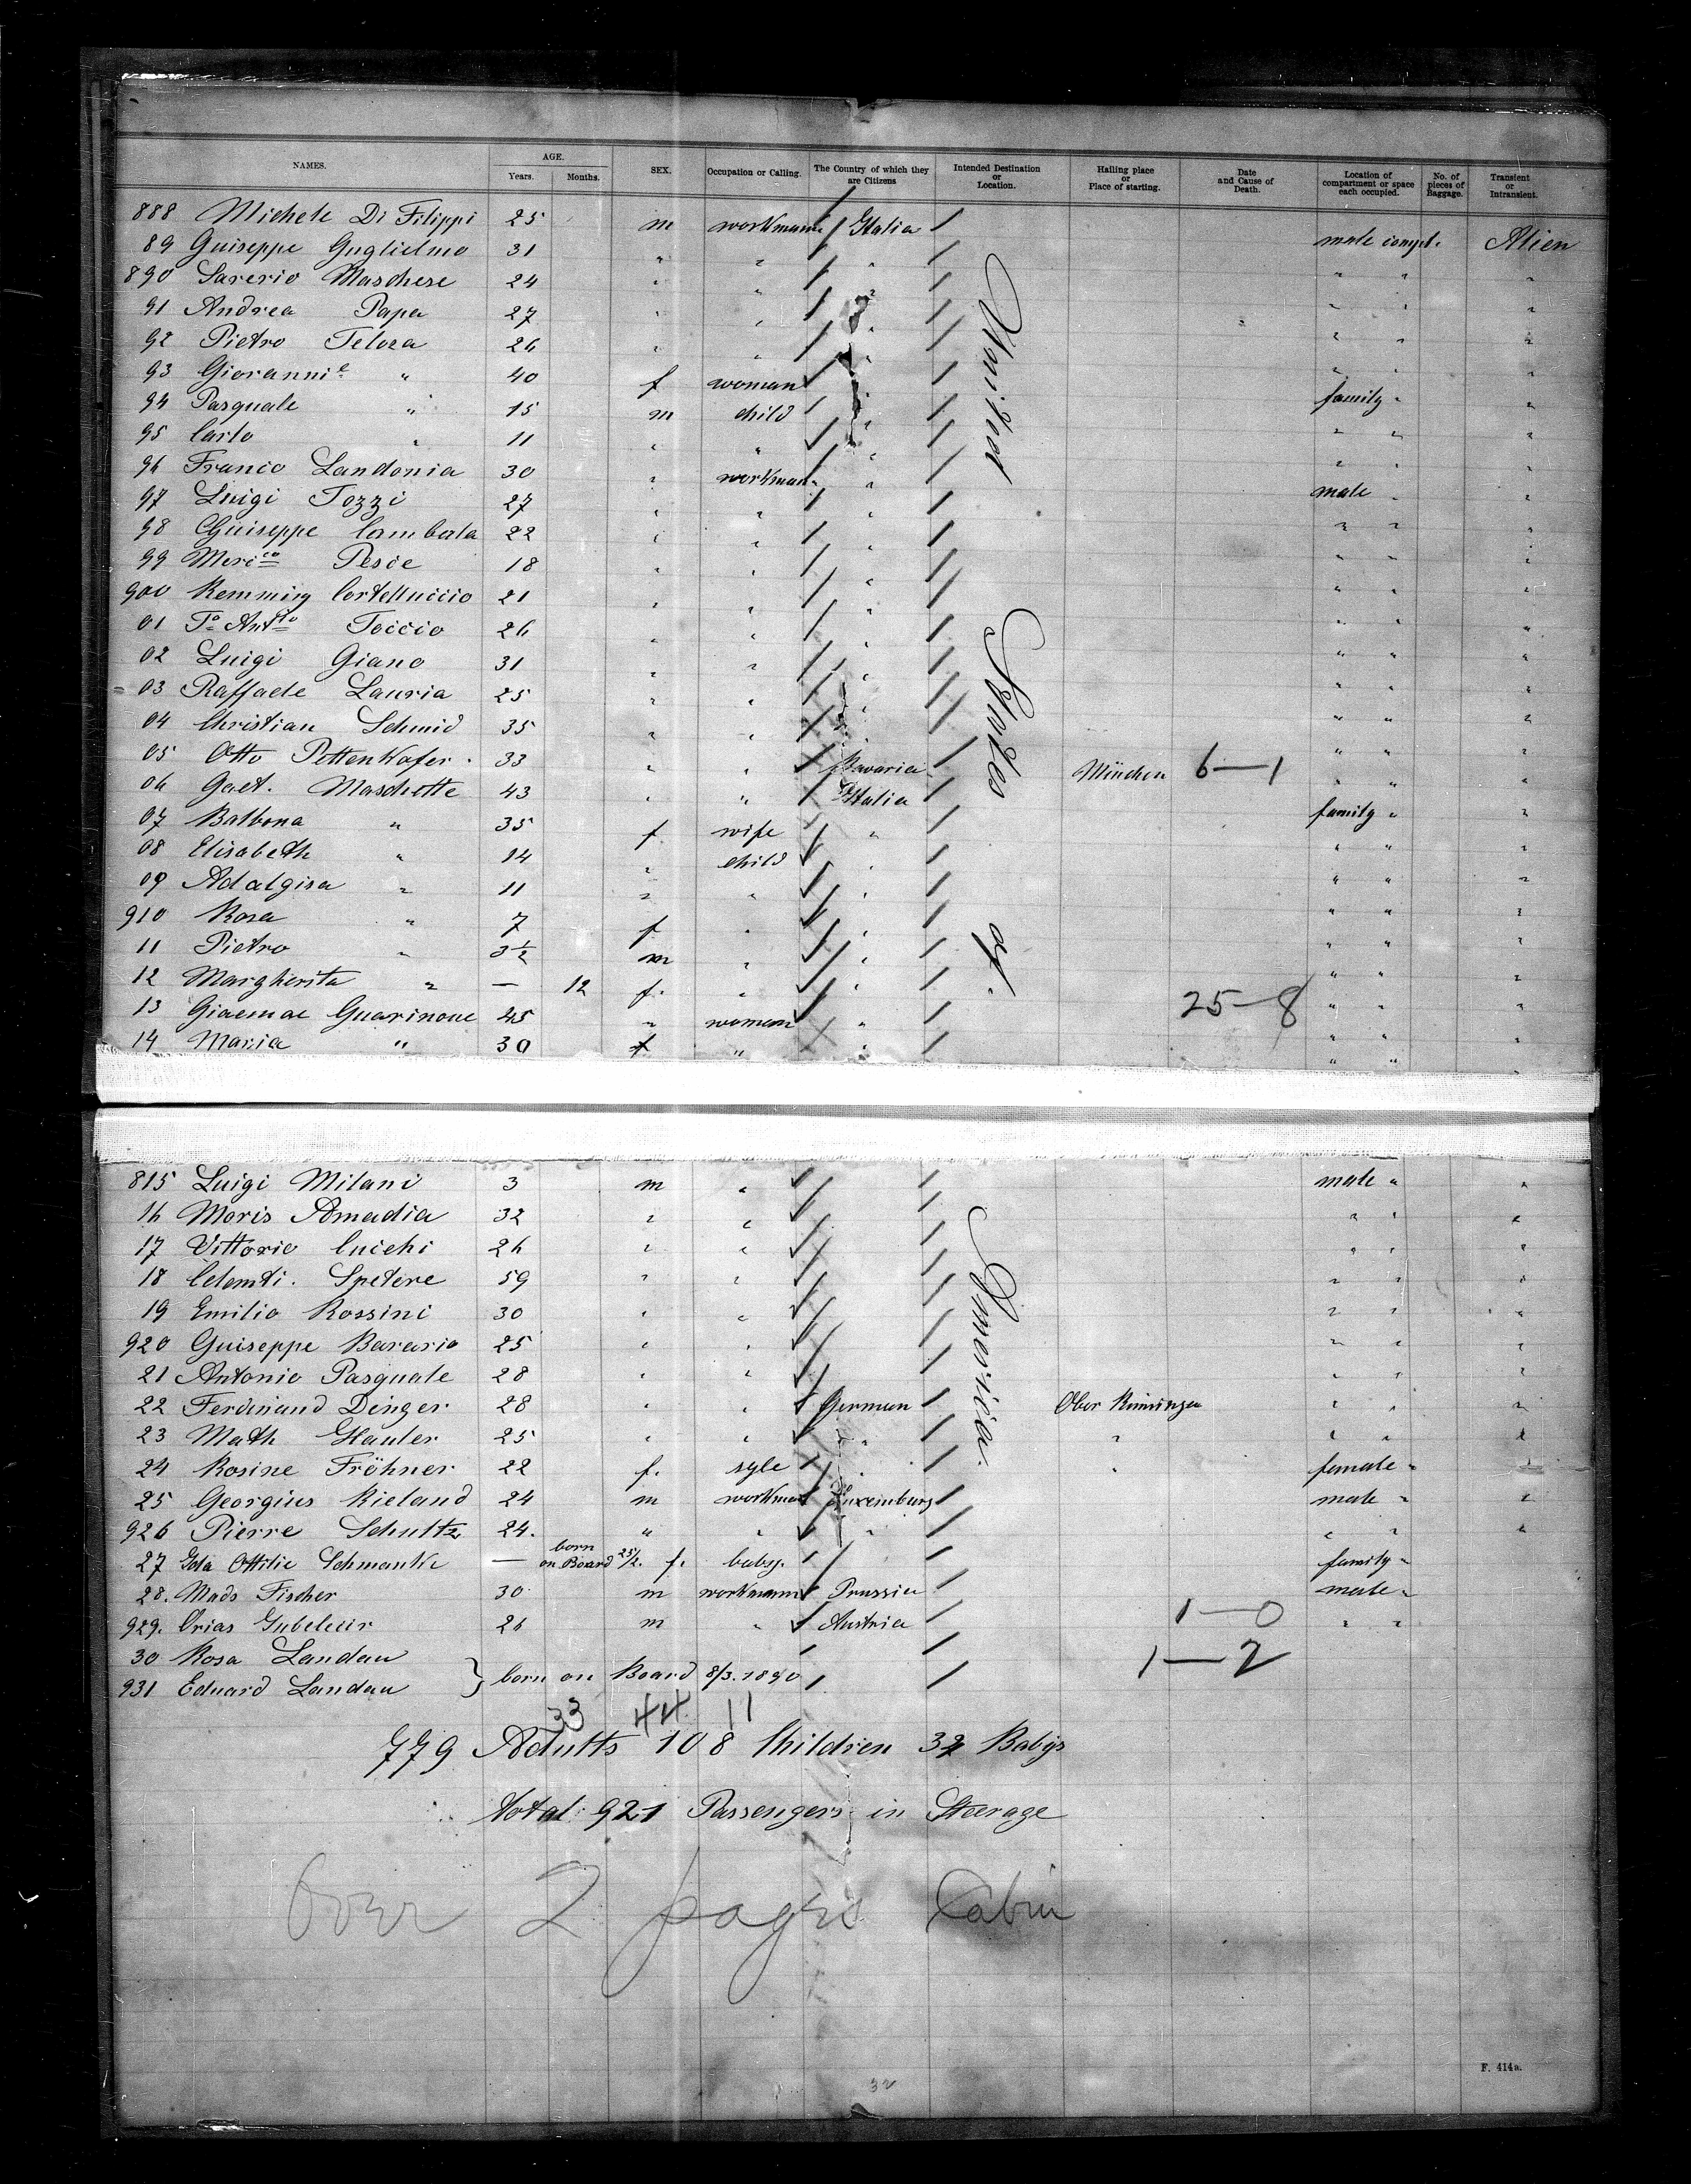 NAMES. AGE. Years. Months. SEX. Occupation or Calling. The Country of which they are Citizens Intended Destination or Location. Hailing place or Place of starting. Date and Cause of Death. Location of compartment or space each occupied. No. of pieces of Baggage. Transient or Intransient.
888 Michele Di Filippi 25 m workmann Italia male compt. Alien
89 Guiseppe Guglielmo 31 " " " " " "
890 Sarerio Maschese 24 " " " " " "
91 Andrea Papa 27 " " " " " "
92 Pietro Teloza 26 " " " " " "
93 Giovannie " 40 f woman " family " "
94 Pasquale " 15 m child " " " "
95 Carlo " 11 " " " " " "
96 Franco Landonia 30 " workman " male " "
97 Luigi Tozzi 27 " " " " " "
98 Guiseppe Combata 22 " " " " " "
99 Merico Pesce 18 " " " " " "
900 Remming Cortelluccio 21 " " " " " "
01 To Anto Toccio 26 " " " " " "
02 Luigi Giano 31 " " " " " "
03 Raffaele Lauria 25 " " " " " "
04 Christian Schmid 35 " " " " " "
05 Otto Pettenkofer 33 " " Bavaria München 6-1 " " "
06 Gaet. Maschette 43 " " Italia family " "
07 Balbona " 35 f wife " " " "
08 Elisabeth " 14 " child " " " "
09 Adalgisa " 11 " " " " " "
910 Rosa " 7 f " " " " "
11 Pietro " 3½ m " " " " "
12 Margherita " — 12 f. " " " " "
13 Giaemae Guarinoue 45 " woman " 25-8 " " "
14 Maria " 30 f " " " " "
United States of America.
815 Luigi Milani 3 m " male " "
16 Moris Amadia 32 " " " " "
17 Vittorio Cuichi 26 " " " " "
18 Celomti. Spetere 59 " " " " "
19 Emilio Rossini 30 " " " " "
920 Guiseppe Barario 25 " " " " "
21 Antonio Pasquale 28 " " " " "
22 Ferdinand Dinger 28 " " German Ober Rimsingen " " "
23 Math Hauler 25 " " " " " " "
24 Rosine Fröhner 22 f. sgle " " female " "
25 Georgius Rieland 24 m workman Luxemburg male " "
926 Pierre Schultz 24. " " " " " "
27 Ida Ottilie Schmanke — born on Board 25/2. f. baby. family "
28. Mads Fischer 30 m workmann Prussia male "
929. Crias Gubeleiir 26 m " Austria 1-0 " "
30 Rosa Landau 1-2
931 Eduard Landau } born on Board 8/3. 1890
33 44 11
779 Adults 108 Children 34 Babys
total: 921 Passengers in Steerage
Over 2 pages Cabin
F. 414a.
32